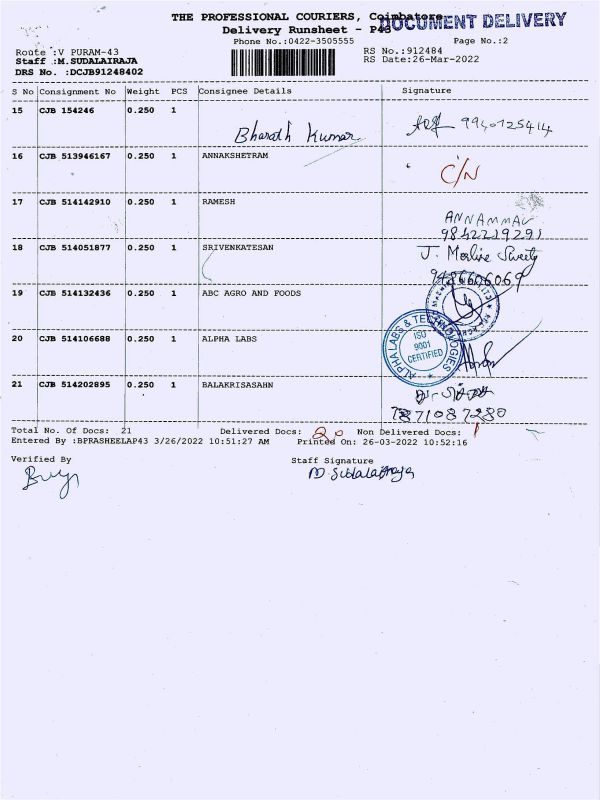 THE PROFESSIONAL COURIERS, Coimbatore
DOCUMENT DELIVERY
Delivery Runsheet - P43
Phone No.:0422-3505555
Page No.:2
Route :V PURAM-43
RS No.:912484
Staff :M.SUDALAIRAJA
RS Date:26-Mar-2022
DRS No. :DCJB91248402
S No Consignment No Weight PCS Consignee Details Signature
15 CJB 154246 0.250 1 Bharath Kumar 9940725414
16 CJB 513946167 0.250 1 ANNAKSHETRAM C/N
17 CJB 514142910 0.250 1 RAMESH ANNAMMAL
9842219291
18 CJB 514051877 0.250 1 SRIVENKATESAN
9486606069
19 CJB 514132436 0.250 1 ABC AGRO AND FOODS
20 CJB 514106688 0.250 1 ALPHA LABS
ALPHA LABS & TECHNOLOGIES
ISO
9001
CERTIFIED
21 CJB 514202895 0.250 1 BALAKRISASAHN
7871087280
Total No. Of Docs: 21 Delivered Docs: 20 Non Delivered Docs: 1
Entered By :BPRASHEELAP43 3/26/2022 10:51:27 AM Printed On: 26-03-2022 10:52:16
Verified By
Staff Signature